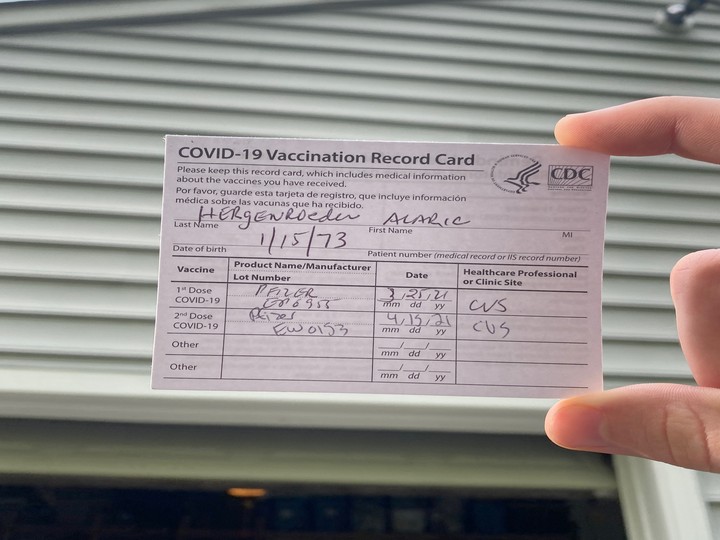 COVID-19 Vaccination Record Card
Please keep this record card, which includes medical information
about the vaccines you have received.
Por favor, guarde esta tarjeta de registro, que incluye información
médica sobre las vacunas que ha recibido.
HERgENROeDeR ALARIC
Last Name First Name MI
1/15/73
Date of birth Patient number (medical record or IIS record number)
Vaccine Product Name/Manufacturer Date Healthcare Professional
Lot Number or Clinic Site
CDC
1st Dose PFIZER 3/25/21 CVS
COVID-19 mm dd yy
2nd Dose Pfizer 4/15/21 CVS
COVID-19 EW0153 mm dd yy
Other / /
mm dd yy
Other / /
mm dd yy